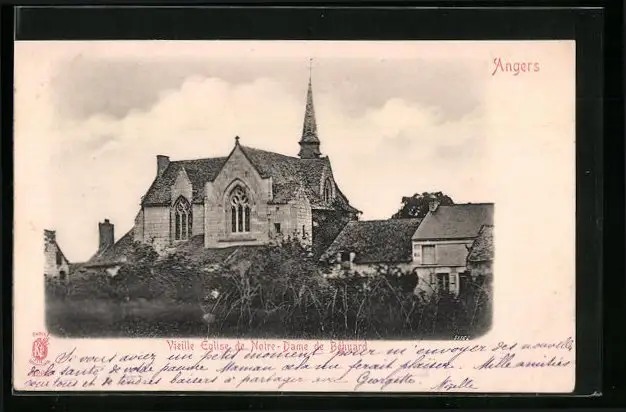 Angers
Vieille Église de Notre-Dame de Béhuard
Si vous avez un petit moment pour m'envoyer des nouvelles
de la santé de votre pauvre Maman cela me ferait plaisir. Mille amitiés
à vous tous et de tendres baisers à partager avec Georgette. Mille